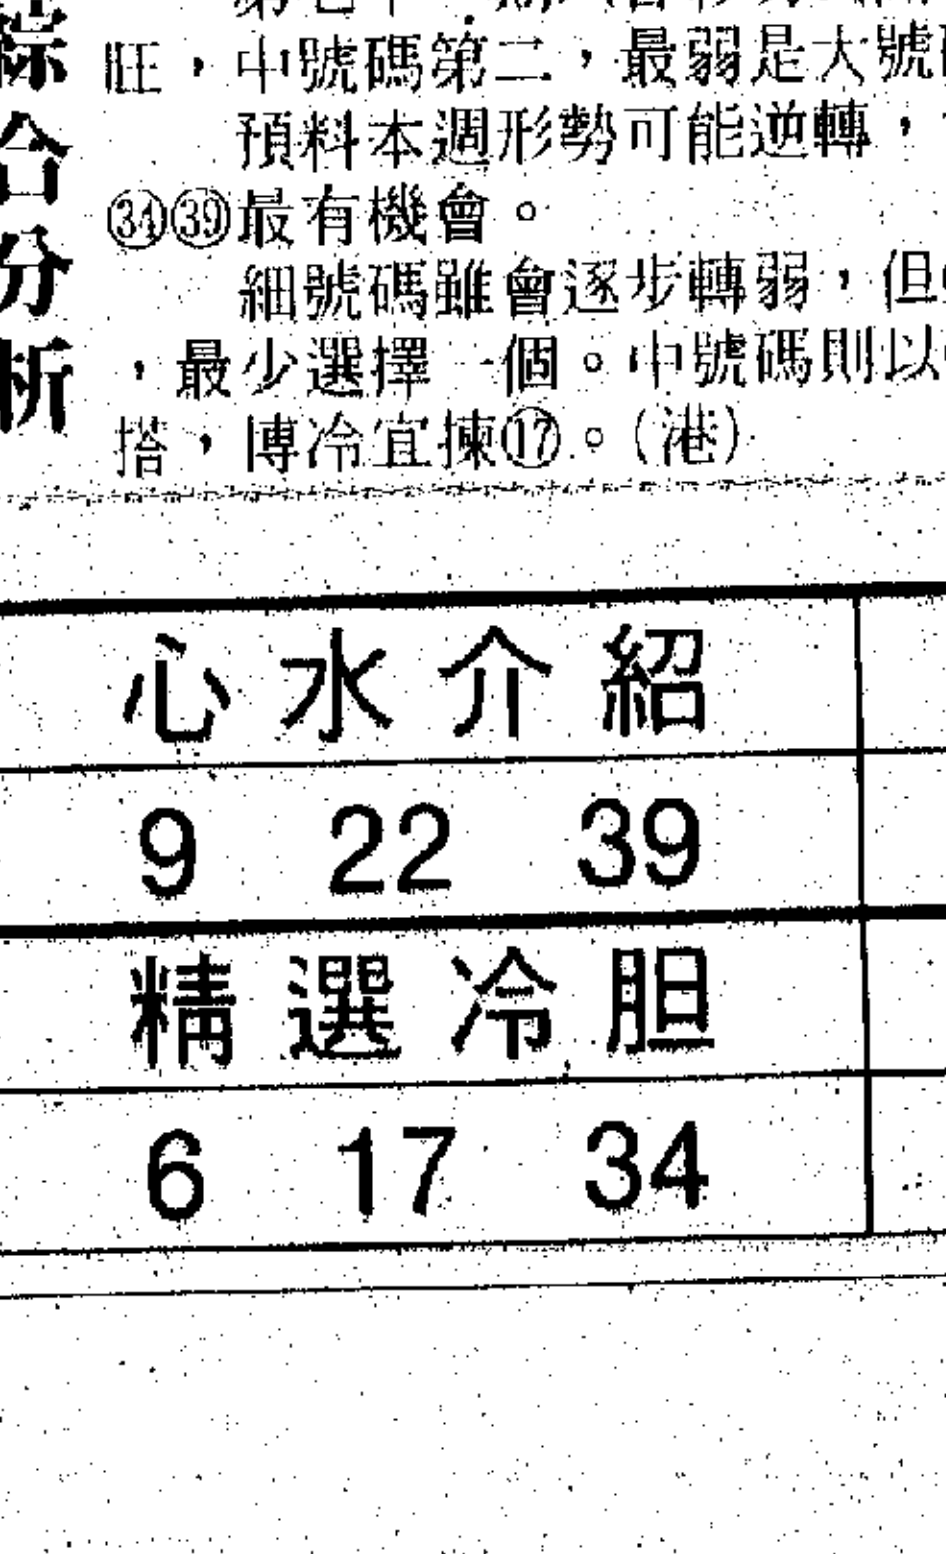 綜合分析
旺，中號碼第二，最弱是大號
預料本週形勢可能逆轉，
㉞㊴最有機會。
細號碼雖會逐步轉弱，但
，最少選擇一個。中號碼則以
搭，博冷宜揀⑰。（港）
心水介紹
9 22 39
精選冷胆
6 17 34